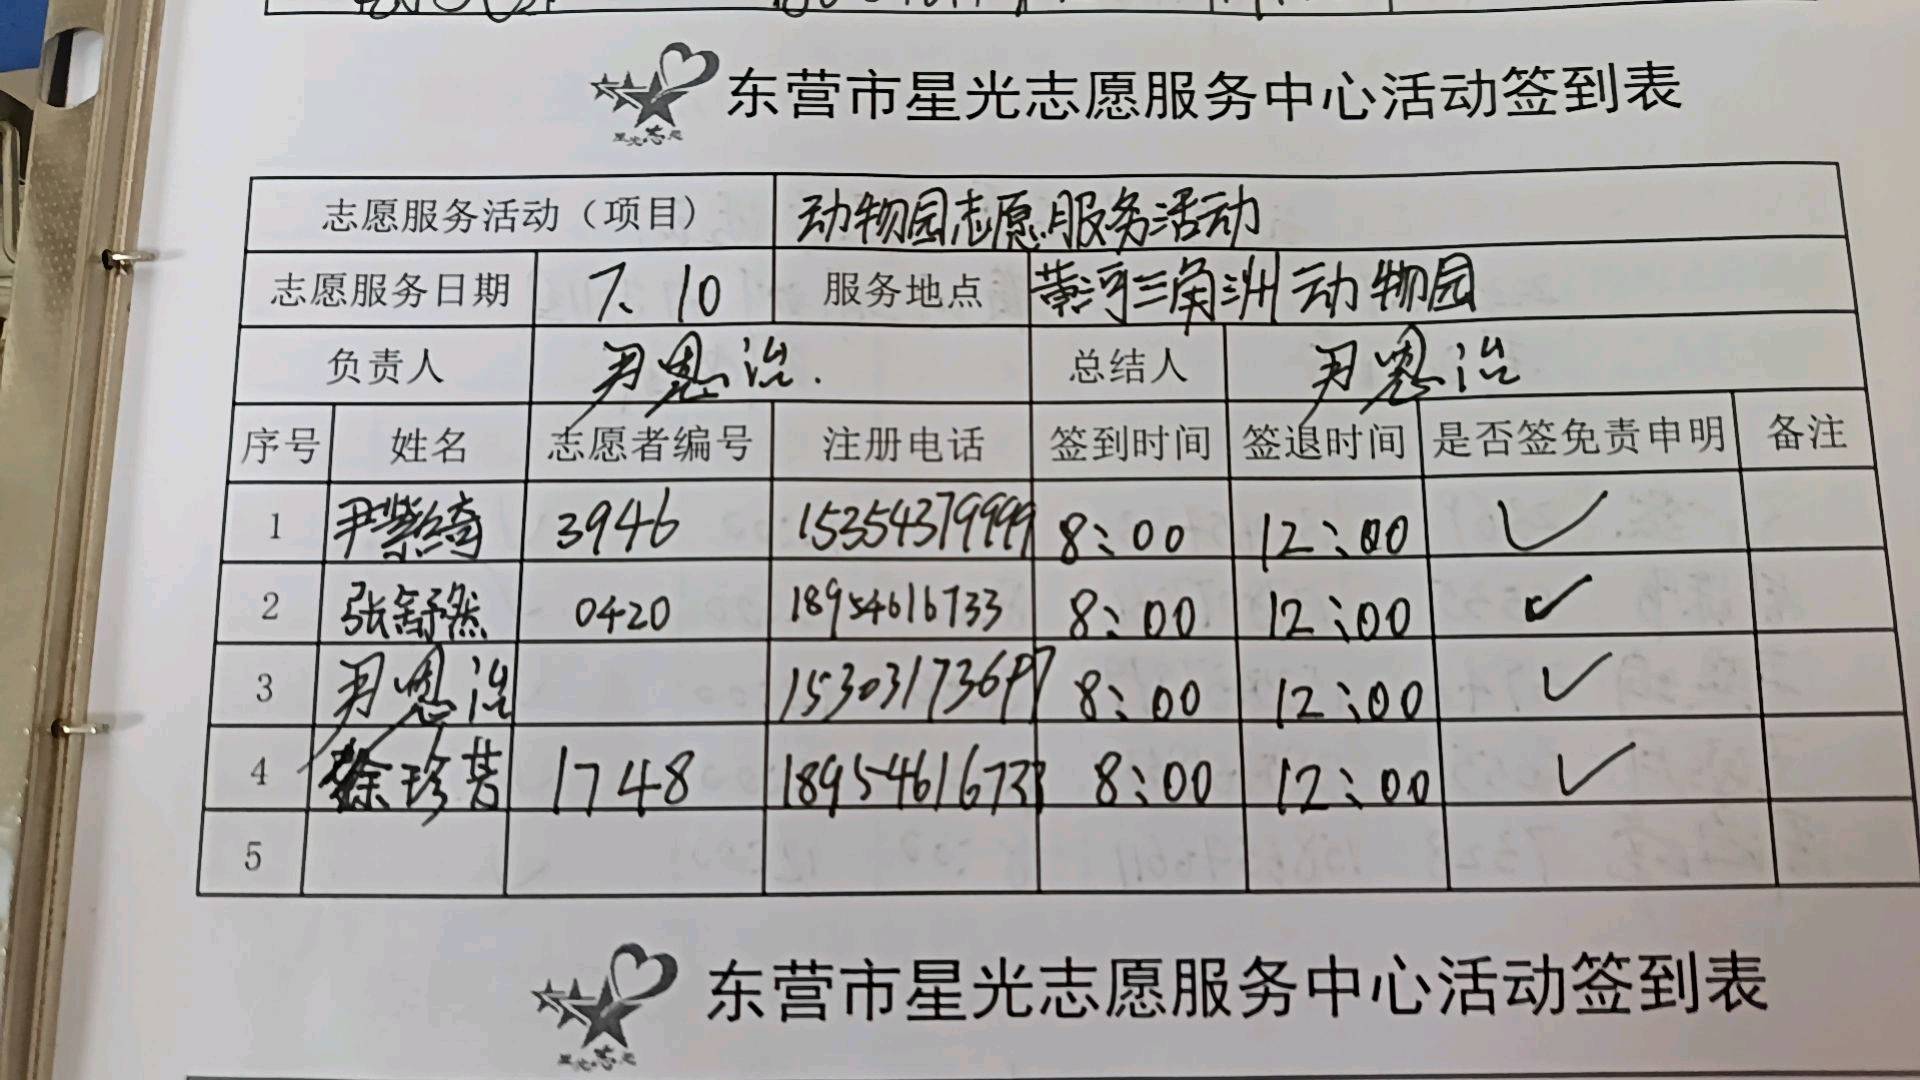 东营市星光志愿服务中心活动签到表
星光志愿
志愿服务活动（项目） 动物园志愿服务活动
志愿服务日期 7、10 服务地点 黄河三角洲动物园
负责人 尹恩治. 总结人 尹恩治
序号 姓名 志愿者编号 注册电话 签到时间 签退时间 是否签免责申明 备注
1 尹紫绮 3946 15354379999 8:00 12:00 ✓
2 张舒然 0420 18954616733 8:00 12:00 ✓
3 尹恩治 8:00 12:00 ✓
4 徐珍芳 1748 18954616733 8:00 12:00 ✓
5
东营市星光志愿服务中心活动签到表
星光志愿